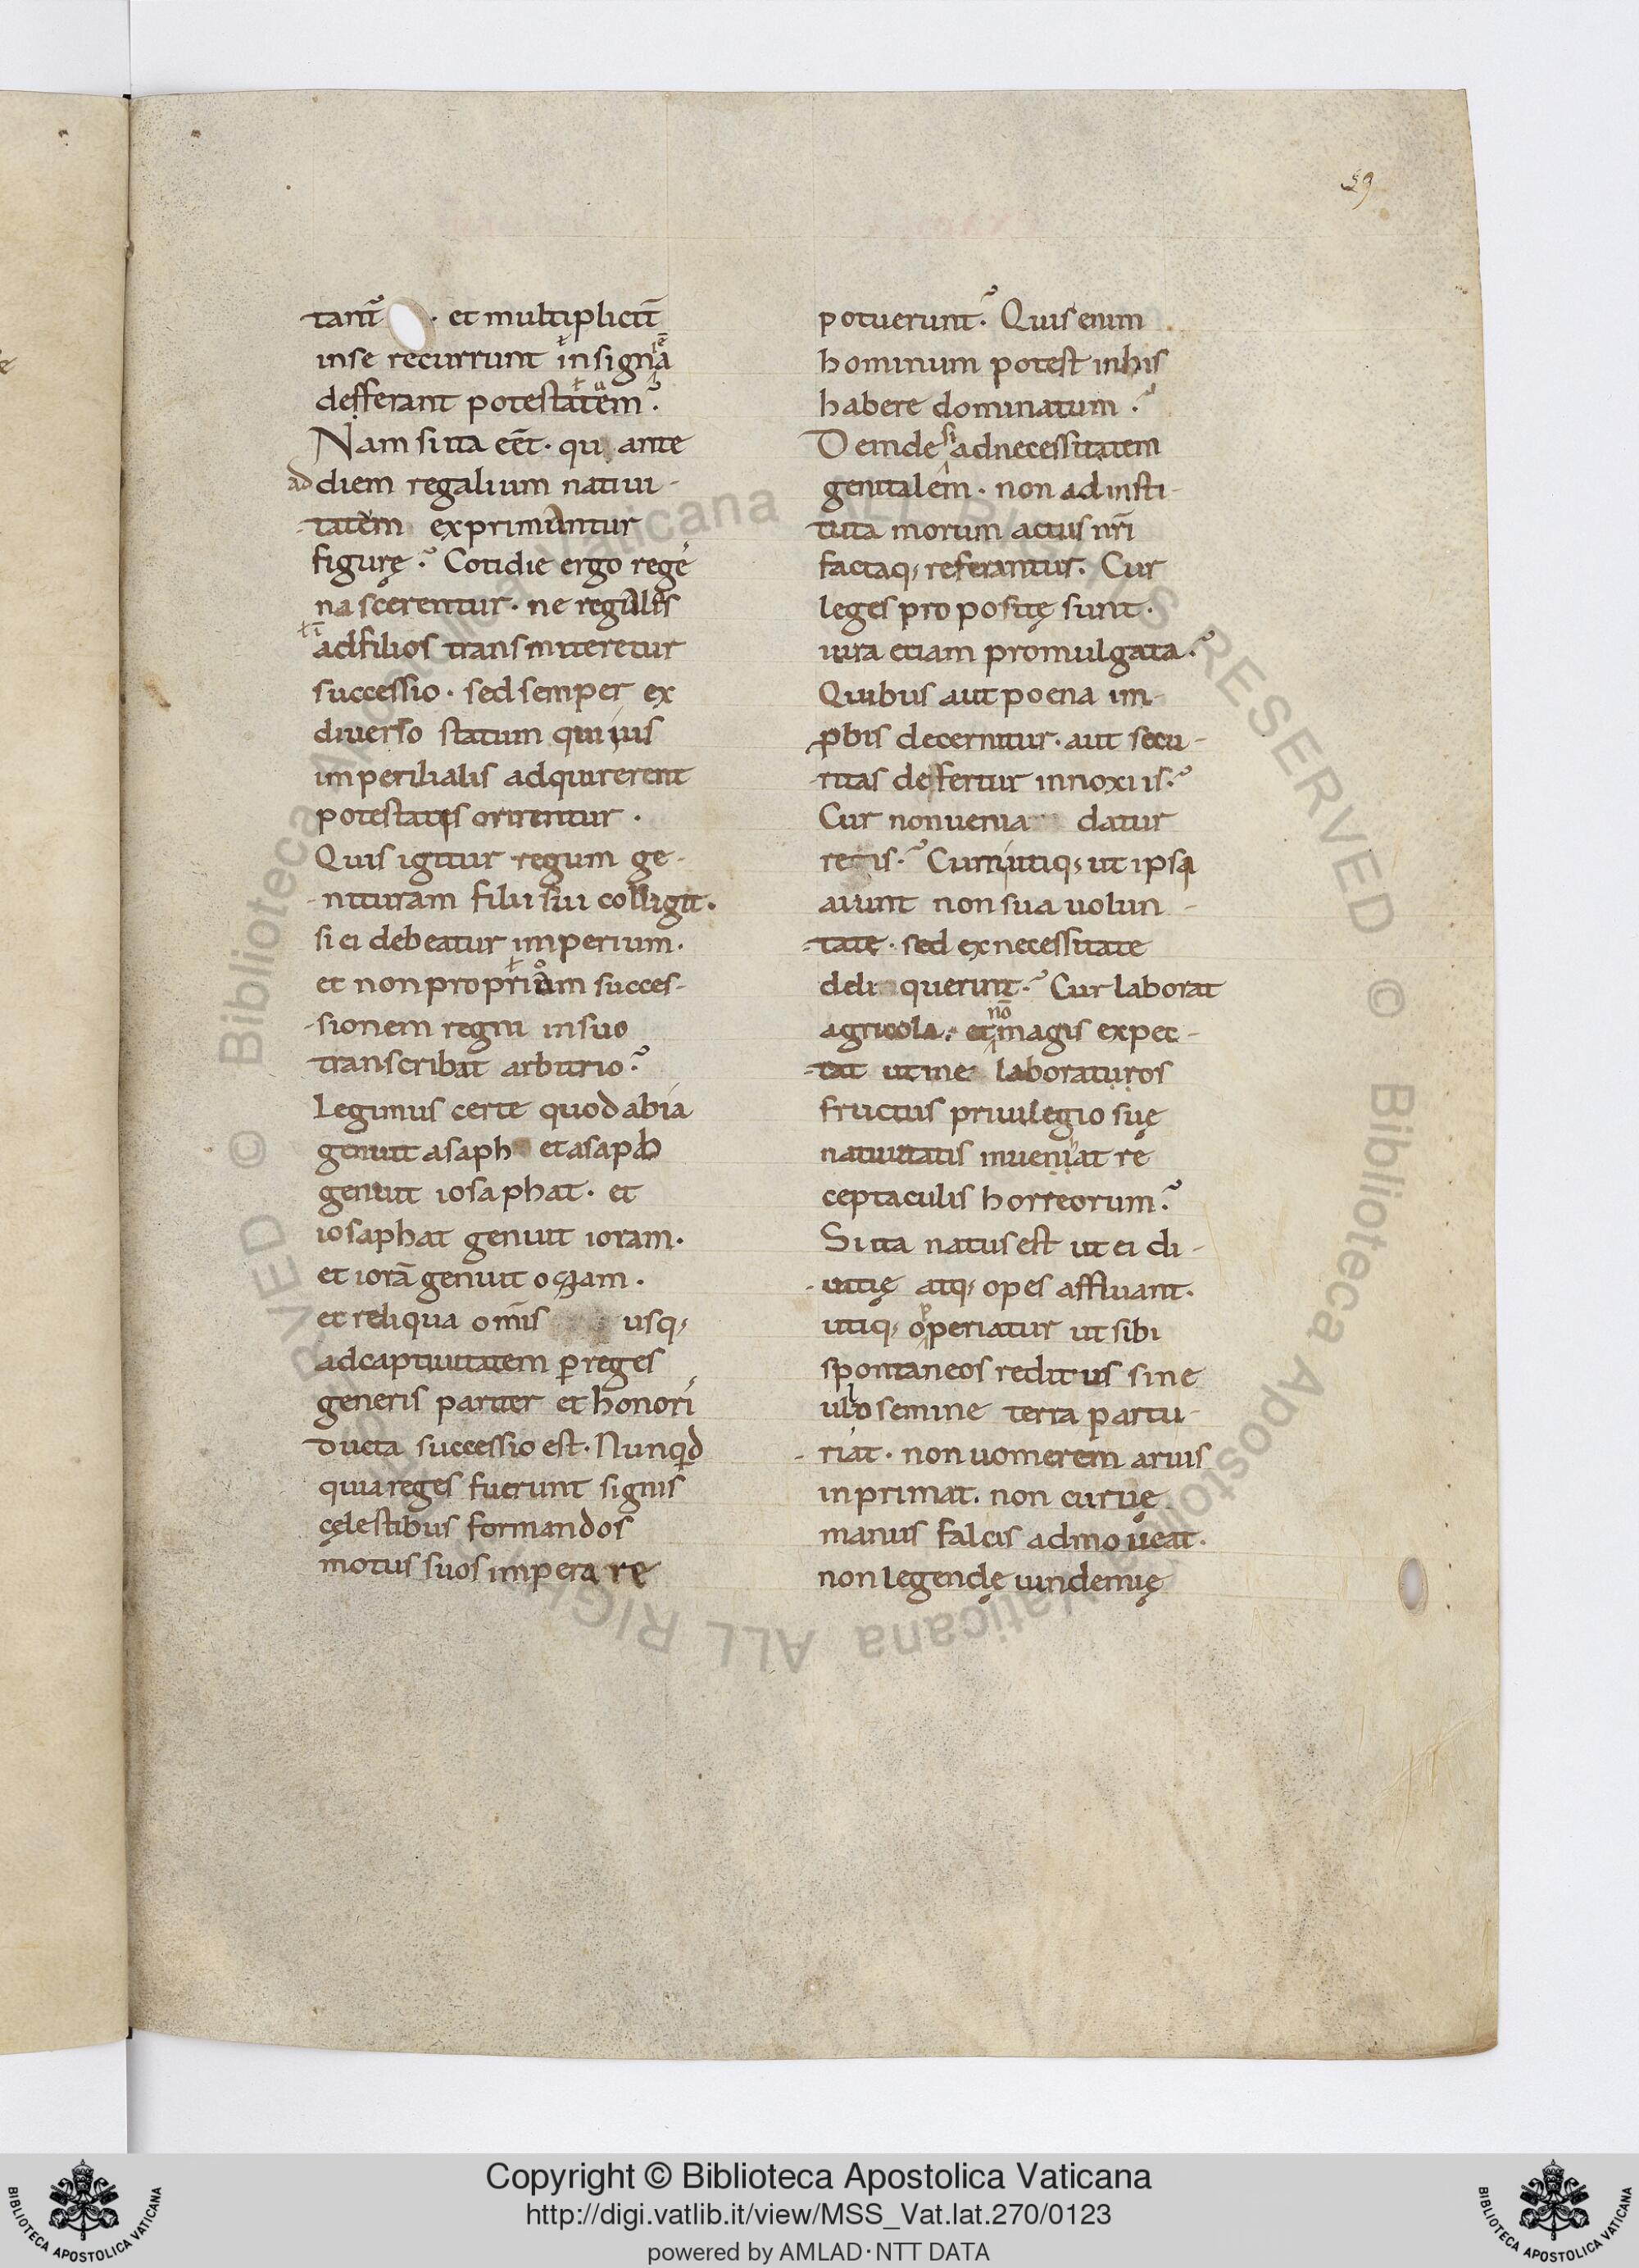 59
tant̄ · et multiplicit̄
inse recurrunt insigna
defferant potestatem.
Nam si ita eēt· qu ante
ad diem regalium natiui-
tatem exprimuntur
figurę. Cotidie ergo rege
nascerentur· ne regalis
adfilios transmitteretur
successio· sed semper ex
diuerso statum qui ius
imperilialis adquirerent
potestatis orirentur·
Quis igitur regum ge-
nituram filii sui colligit·
si ei debeatur imperium·
et non proprium succes-
sionem regni insuo
transcribat arbitrio?
Legimus certe quod abia
genuit asaph et asaph
genuit iosaphat· et
iosaphat genuit ioram·
et iorā genuit oziam·
et reliqua om̄is usq;
adcaptiuitatem p̲ reges
generis pariter et honori
ducta successio est· Nunqd
quia reges fuerunt signis
cęlestibus formandos
motus suos imperare
potuerunt? Quis enim
hominum potest inhis
habere dominatum?
Deinde si adnecessitatem
genitalem· non ad insti-
tuta morum actus nr̄i
factaq; referantur· Cur
leges propositę sunt·
iura etiam promulgata?
Quibus aut poena im-
p̲bis decernitur· aut secu-
ritas deffertur innoxiis?
Cur non uenia datur
reis? Cum utiq; ut ipsi
aiunt non sua uolun-
tate· sed ex necessitate
deli querint? Cur laborat
agricola· et nō magis expec-
tat ut ine laboraturos
fructus priuilegio suę
natiuitatis inueniat re
ceptaculis horreorum?
Si ita natus est ut ei di-
uitię atq; opes affluant·
utiq; operiatur ut sibi
spontaneos reditus sine
ullo semine terra partu-
riat· non uomerem aruis
inprimat· non curuę
manus falcis admoueat·
non legendę uindemię
© Biblioteca Apostolica Vaticana ALL RIGHTS RESERVED © Biblioteca Apostolica Vaticana ALL RIGHTS RESERVED
Copyright © Biblioteca Apostolica Vaticana
http://digi.vatlib.it/view/MSS_Vat.lat.270/0123
powered by AMLAD·NTT DATA
BIBLIOTECA APOSTOLICA VATICANA
BIBLIOTECA APOSTOLICA VATICANA